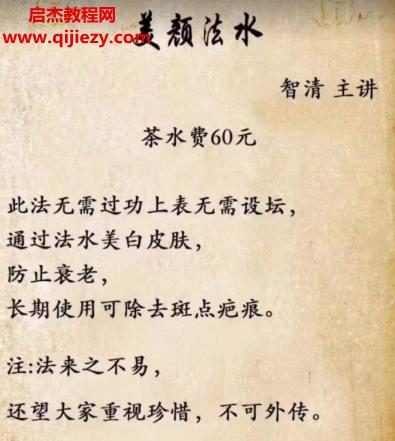 启杰教程网
www.qijiezy.com
美颜法水
智清 主讲
茶水费60元
此法无需过功上表无需设坛，
通过法水美白皮肤，
防止衰老，
长期使用可除去斑点疤痕。
注:法来之不易，
还望大家重视珍惜，不可外传。